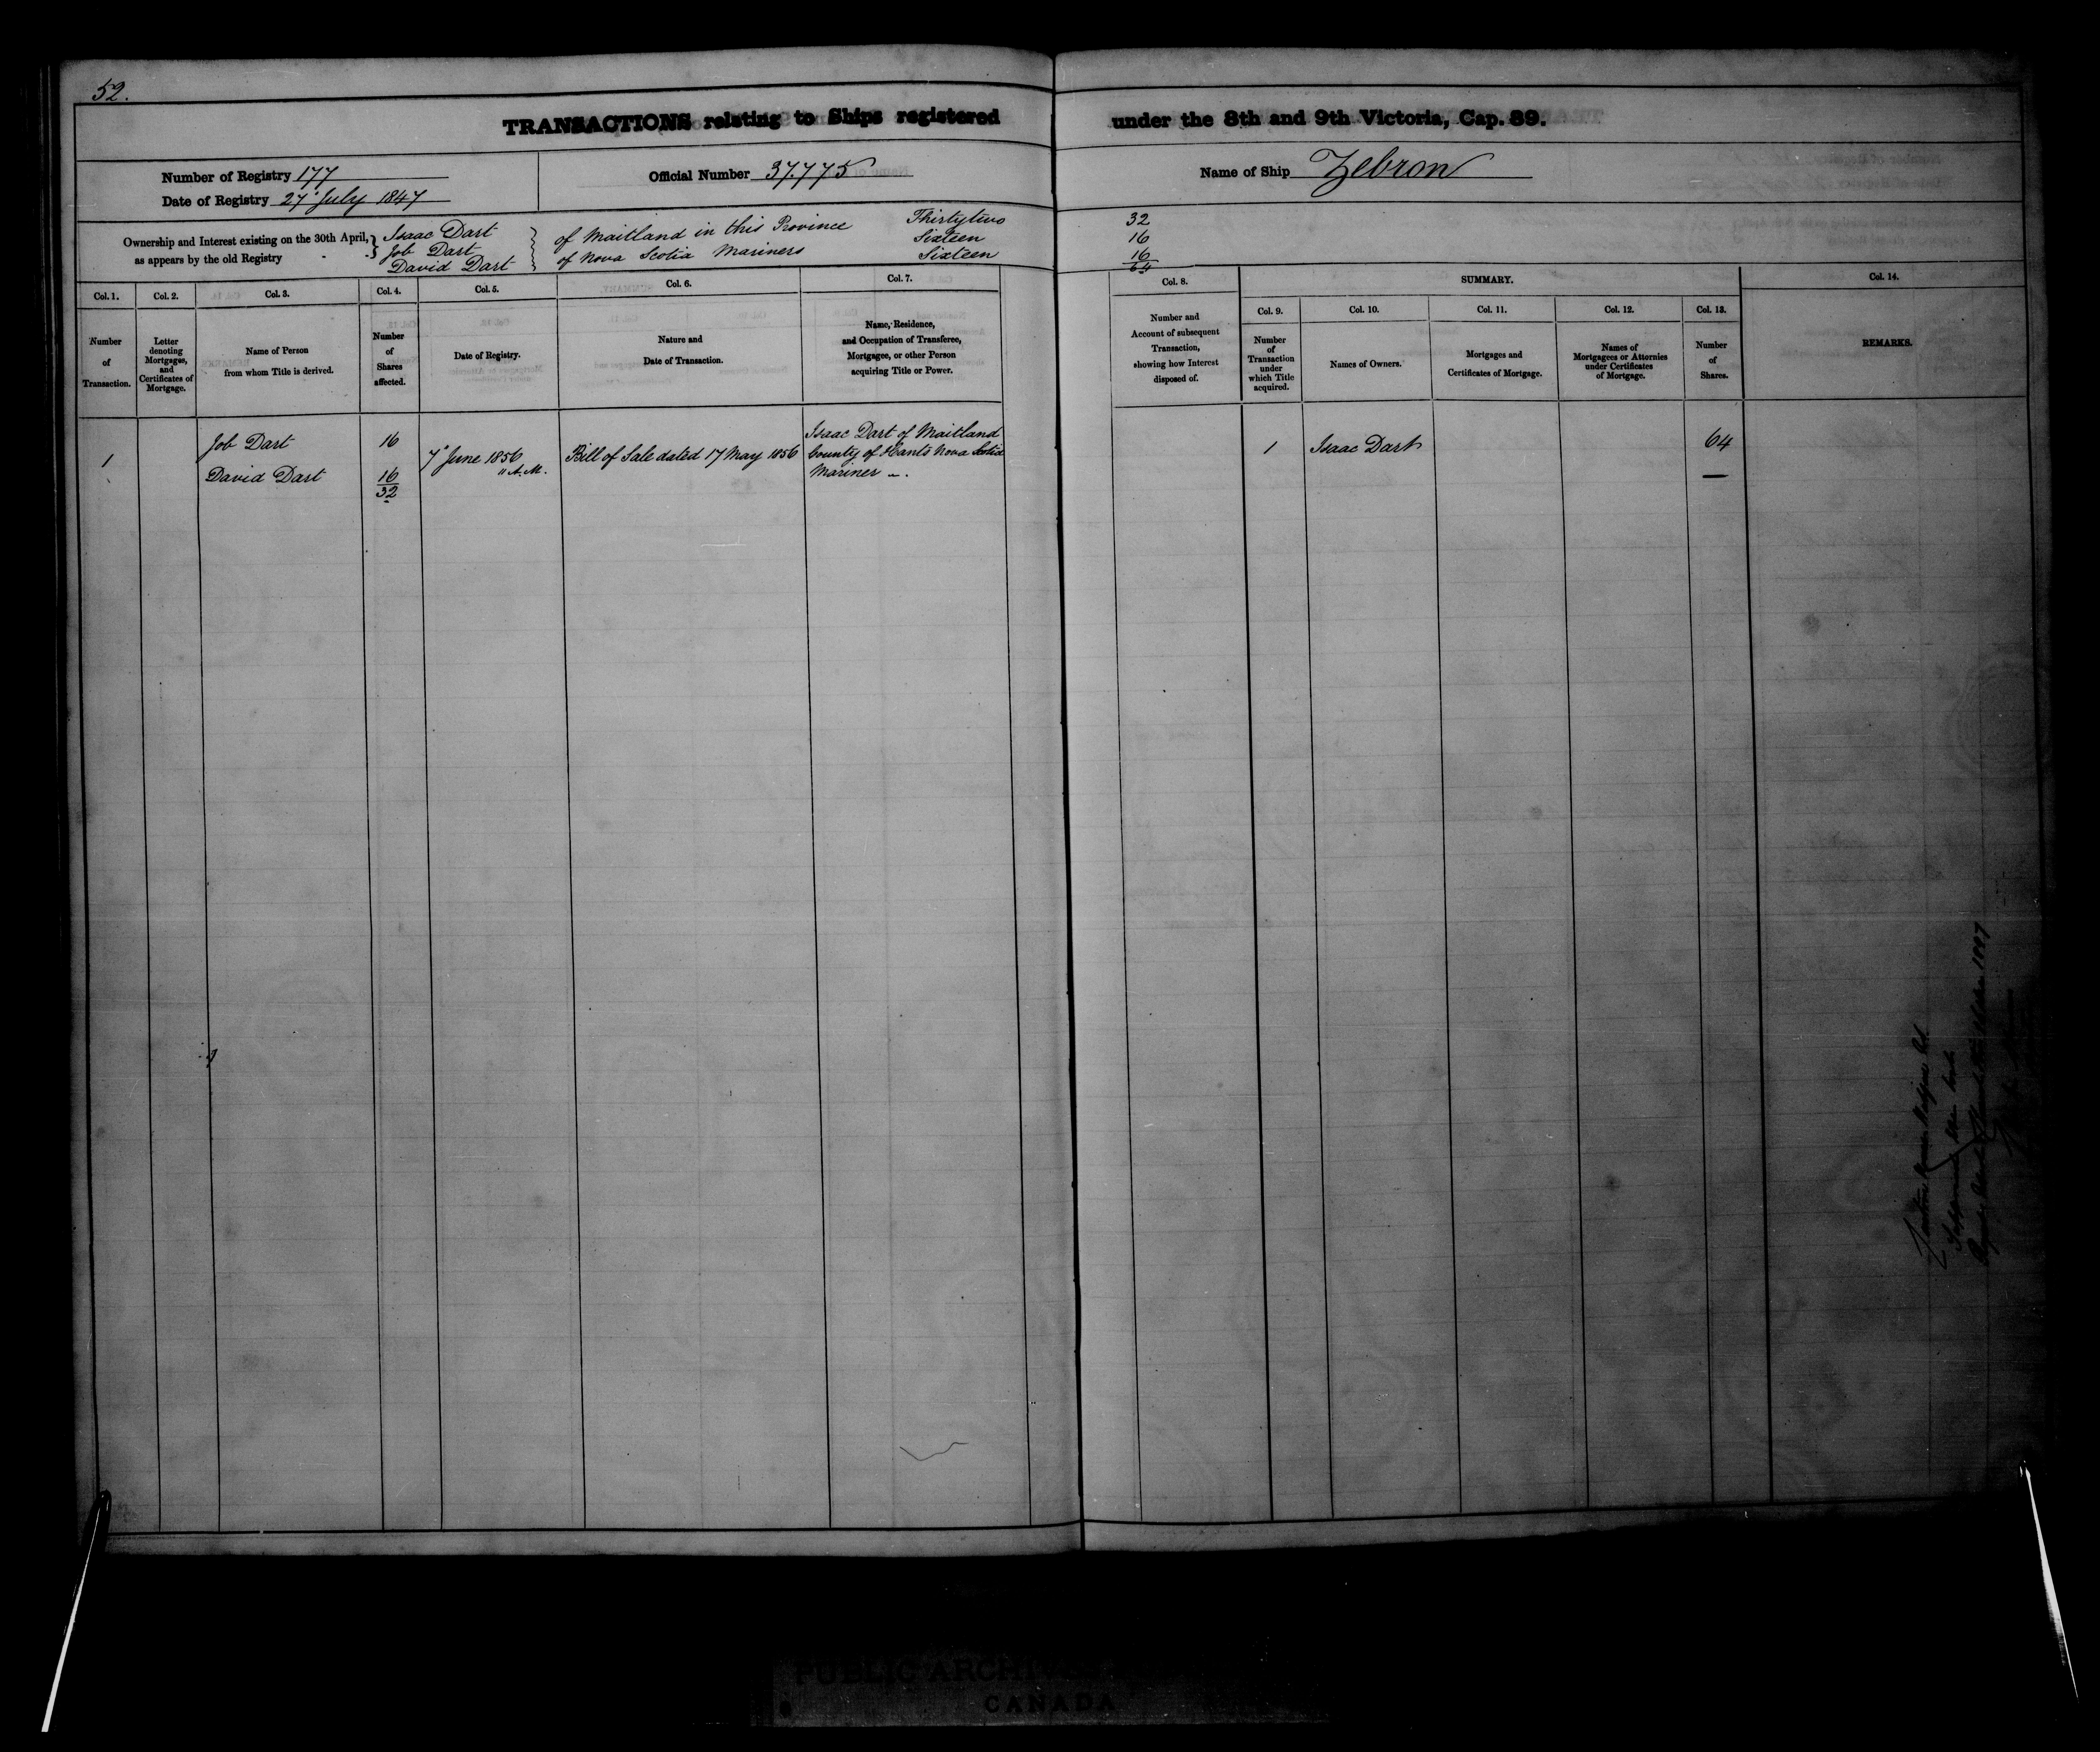 52.
TRANSACTIONS relating to Ships registered under the 8th and 9th Victoria, Cap. 89.
Number of Registry 177
Date of Registry 27 July 1847
Official Number 37.775
Name of Ship Zebron
Ownership and Interest existing on the 30th April, as appears by the old Registry
Isaac Dart of Maitland in this Province Thirtytwo 32
Job Dart Sixteen 16
David Dart of Nova Scotia Mariners Sixteen 16
64
Col. 1.
Number of Transaction.
Col. 2.
Letter denoting Mortgages, and Certificates of Mortgage.
Col. 3.
Name of Person from whom Title is derived.
Col. 4.
Number of Shares affected.
Col. 5.
Date of Registry.
Col. 6.
Nature and Date of Transaction.
Col. 7.
Name, Residence, and Occupation of Transferee, Mortgagee, or other Person acquiring Title or Power.
Col. 8.
Number and Account of subsequent Transaction, showing how Interest disposed of.
SUMMARY.
Col. 9.
Number of Transaction under which Title acquired.
Col. 10.
Names of Owners.
Col. 11.
Mortgages and Certificates of Mortgage.
Col. 12.
Names of Mortgagees or Attornies under Certificates of Mortgage.
Col. 13.
Number of Shares.
Col. 14.
REMARKS.
1
Job Dart 16
David Dart 16
32
7 June 1856
11 A.M.
Bill of Sale dated 17 May 1856
Isaac Dart of Maitland
County of Hants Nova Scotia
Mariner
1 Isaac Dart 64
PUBLIC ARCHIVES
CANADA